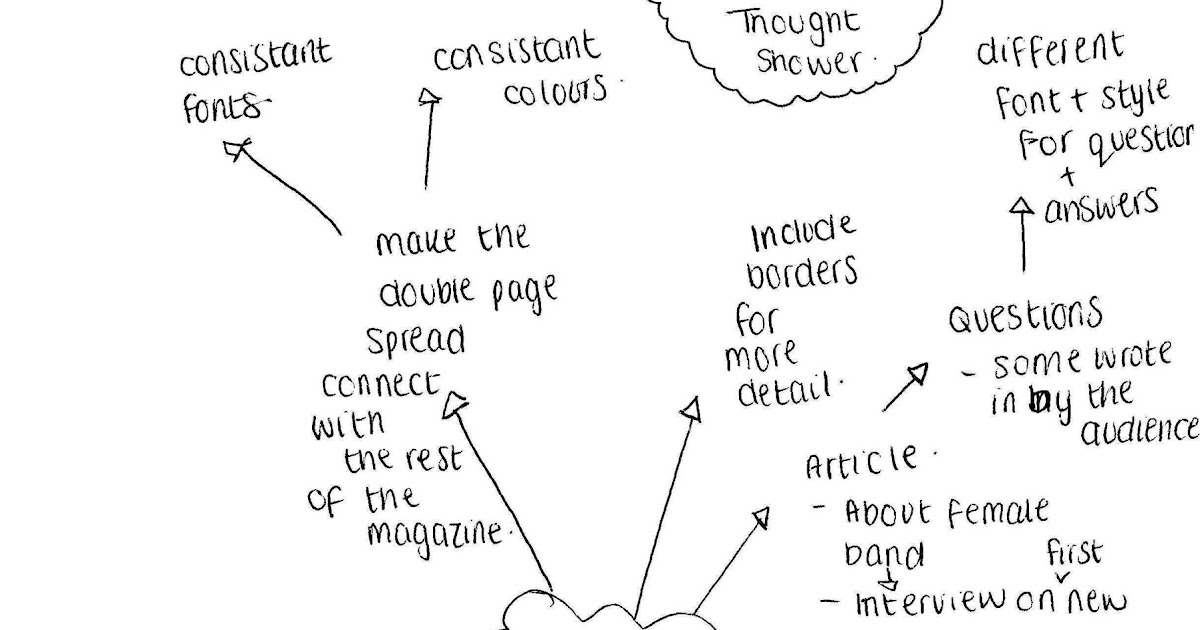 Thought
Shower.
consistant
fonts
consistant
colours.
different
font + style
for question
+
answers
make the
double page
spread
connect
with
the rest
of the
magazine.
Include
borders
for
more
detail.
Questions
- some wrote
in by the
audience
Article.
- About female
band
first
- Interview on new